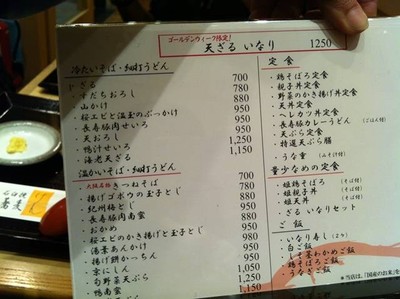 ゴールデンウィーク限定!
天ざる いなり 1250
冷たいそば・細打うどん
・ざる 700
・すだちおろし 780
・山かけ 880
・桜エビと温玉のぶっかけ 950
・長寿豚肉せいろ 950
・天おろし 950
・鴨汁せいろ 1,250
・海老天ざる 1,150
温かいそば・細打うどん
大阪名物 きつねそば 700
・揚げゴボウの玉子とじ 780
・紀州梅とじ 880
・長寿豚肉南蛮
・おかめ
・桜エビのかき揚げと玉子とじ 980
・湯葉あんかけ 950
・揚げ餅かっちん 950
・京にしん 1,050
・旬野菜天ぷら 1,150
・鴨南蛮
定食
・鶏そぼろ定食
・親子丼定食
・野菜のかき揚げ丼定食
・天丼定食
・ヘレカツ丼定食
・長寿豚カレーうどん (ごはん付)
・天ぷら定食
・特選天ぷら膳
・うな重 (みそ汁付)
量少なめの定食
・姫鶏そぼろ (そば付)
・姫親子丼 (そば付)
・姫天丼 (そば付)
・ざるいなりセット
ご飯
・いなり寿し (2ケ)
・白ご飯
・しそ茎わかめご飯
・鶏そぼろご飯
・うなぎご飯
★当店は、「国産のお米」を